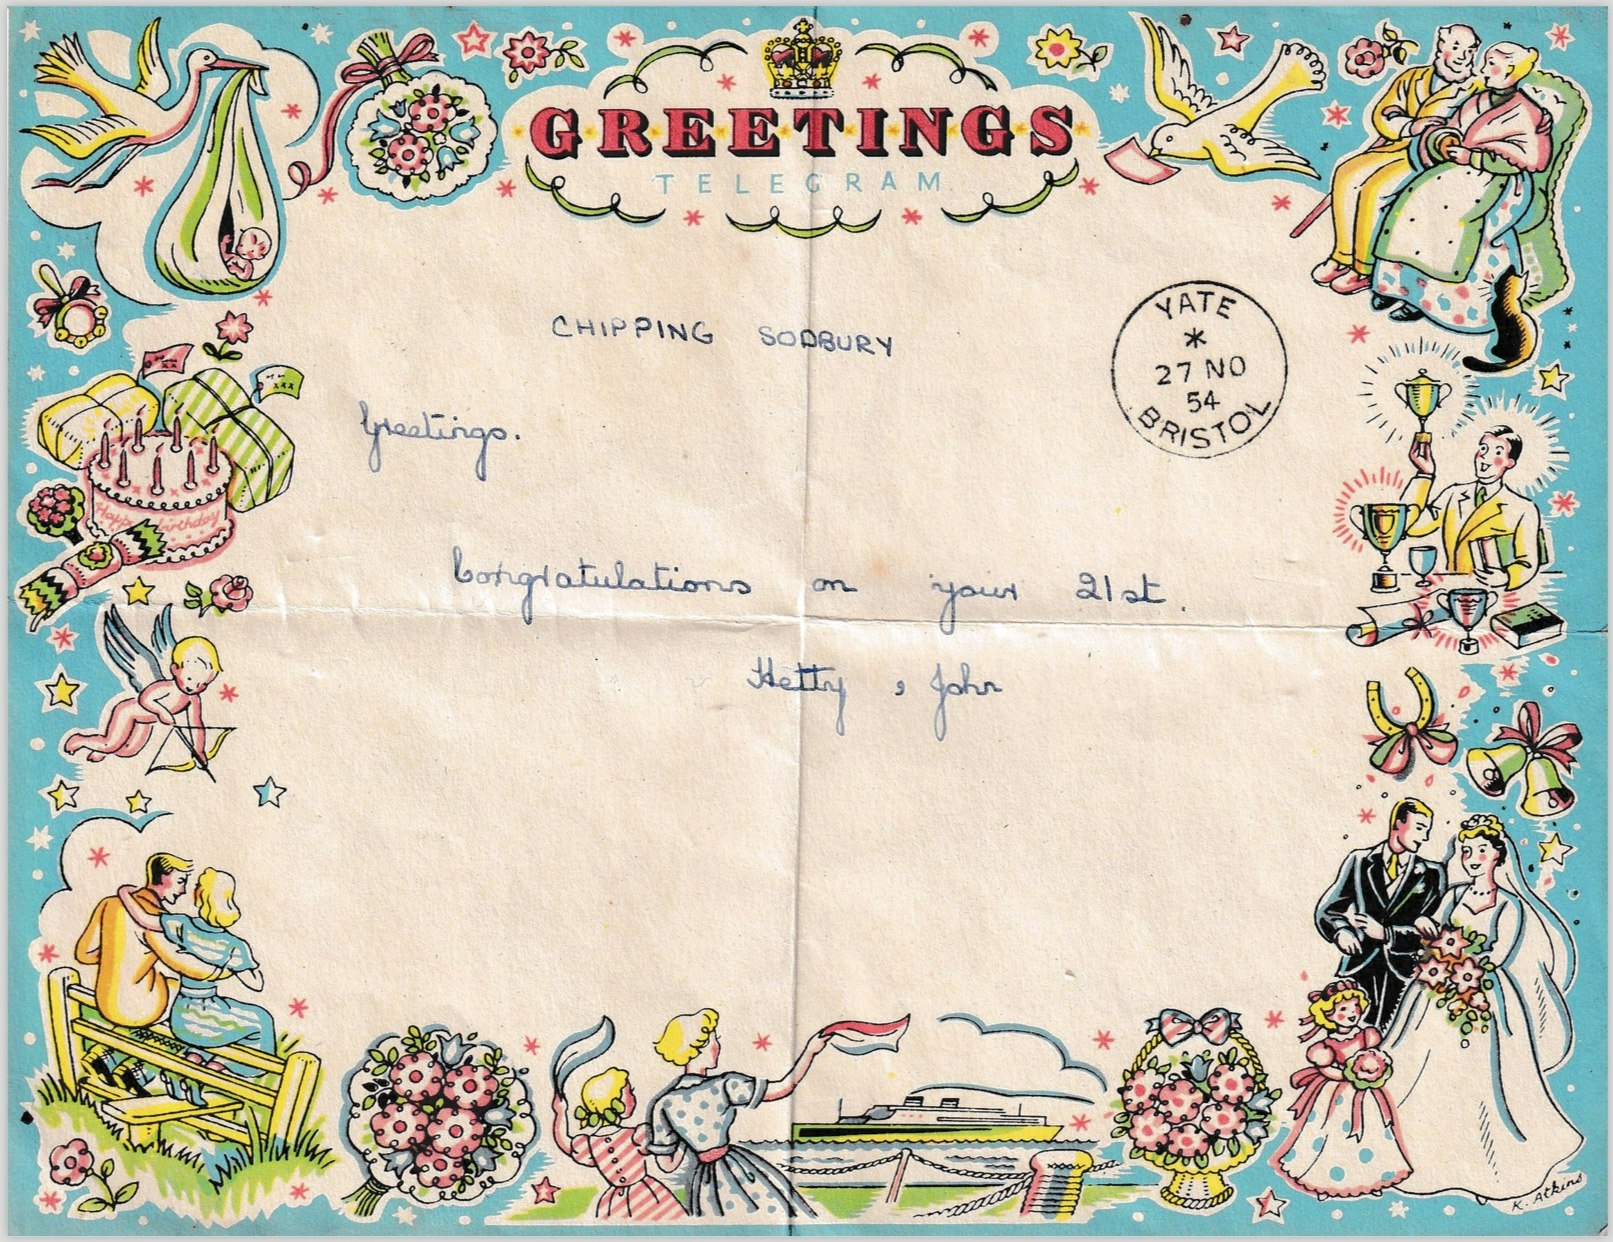 GREETINGS
TELEGRAM
CHIPPING SODBURY
YATE
*
27 NO
54
BRISTOL
Greetings.
Happy Birthday
Congratulations on your 21st.
Hetty , John
K. Atkins